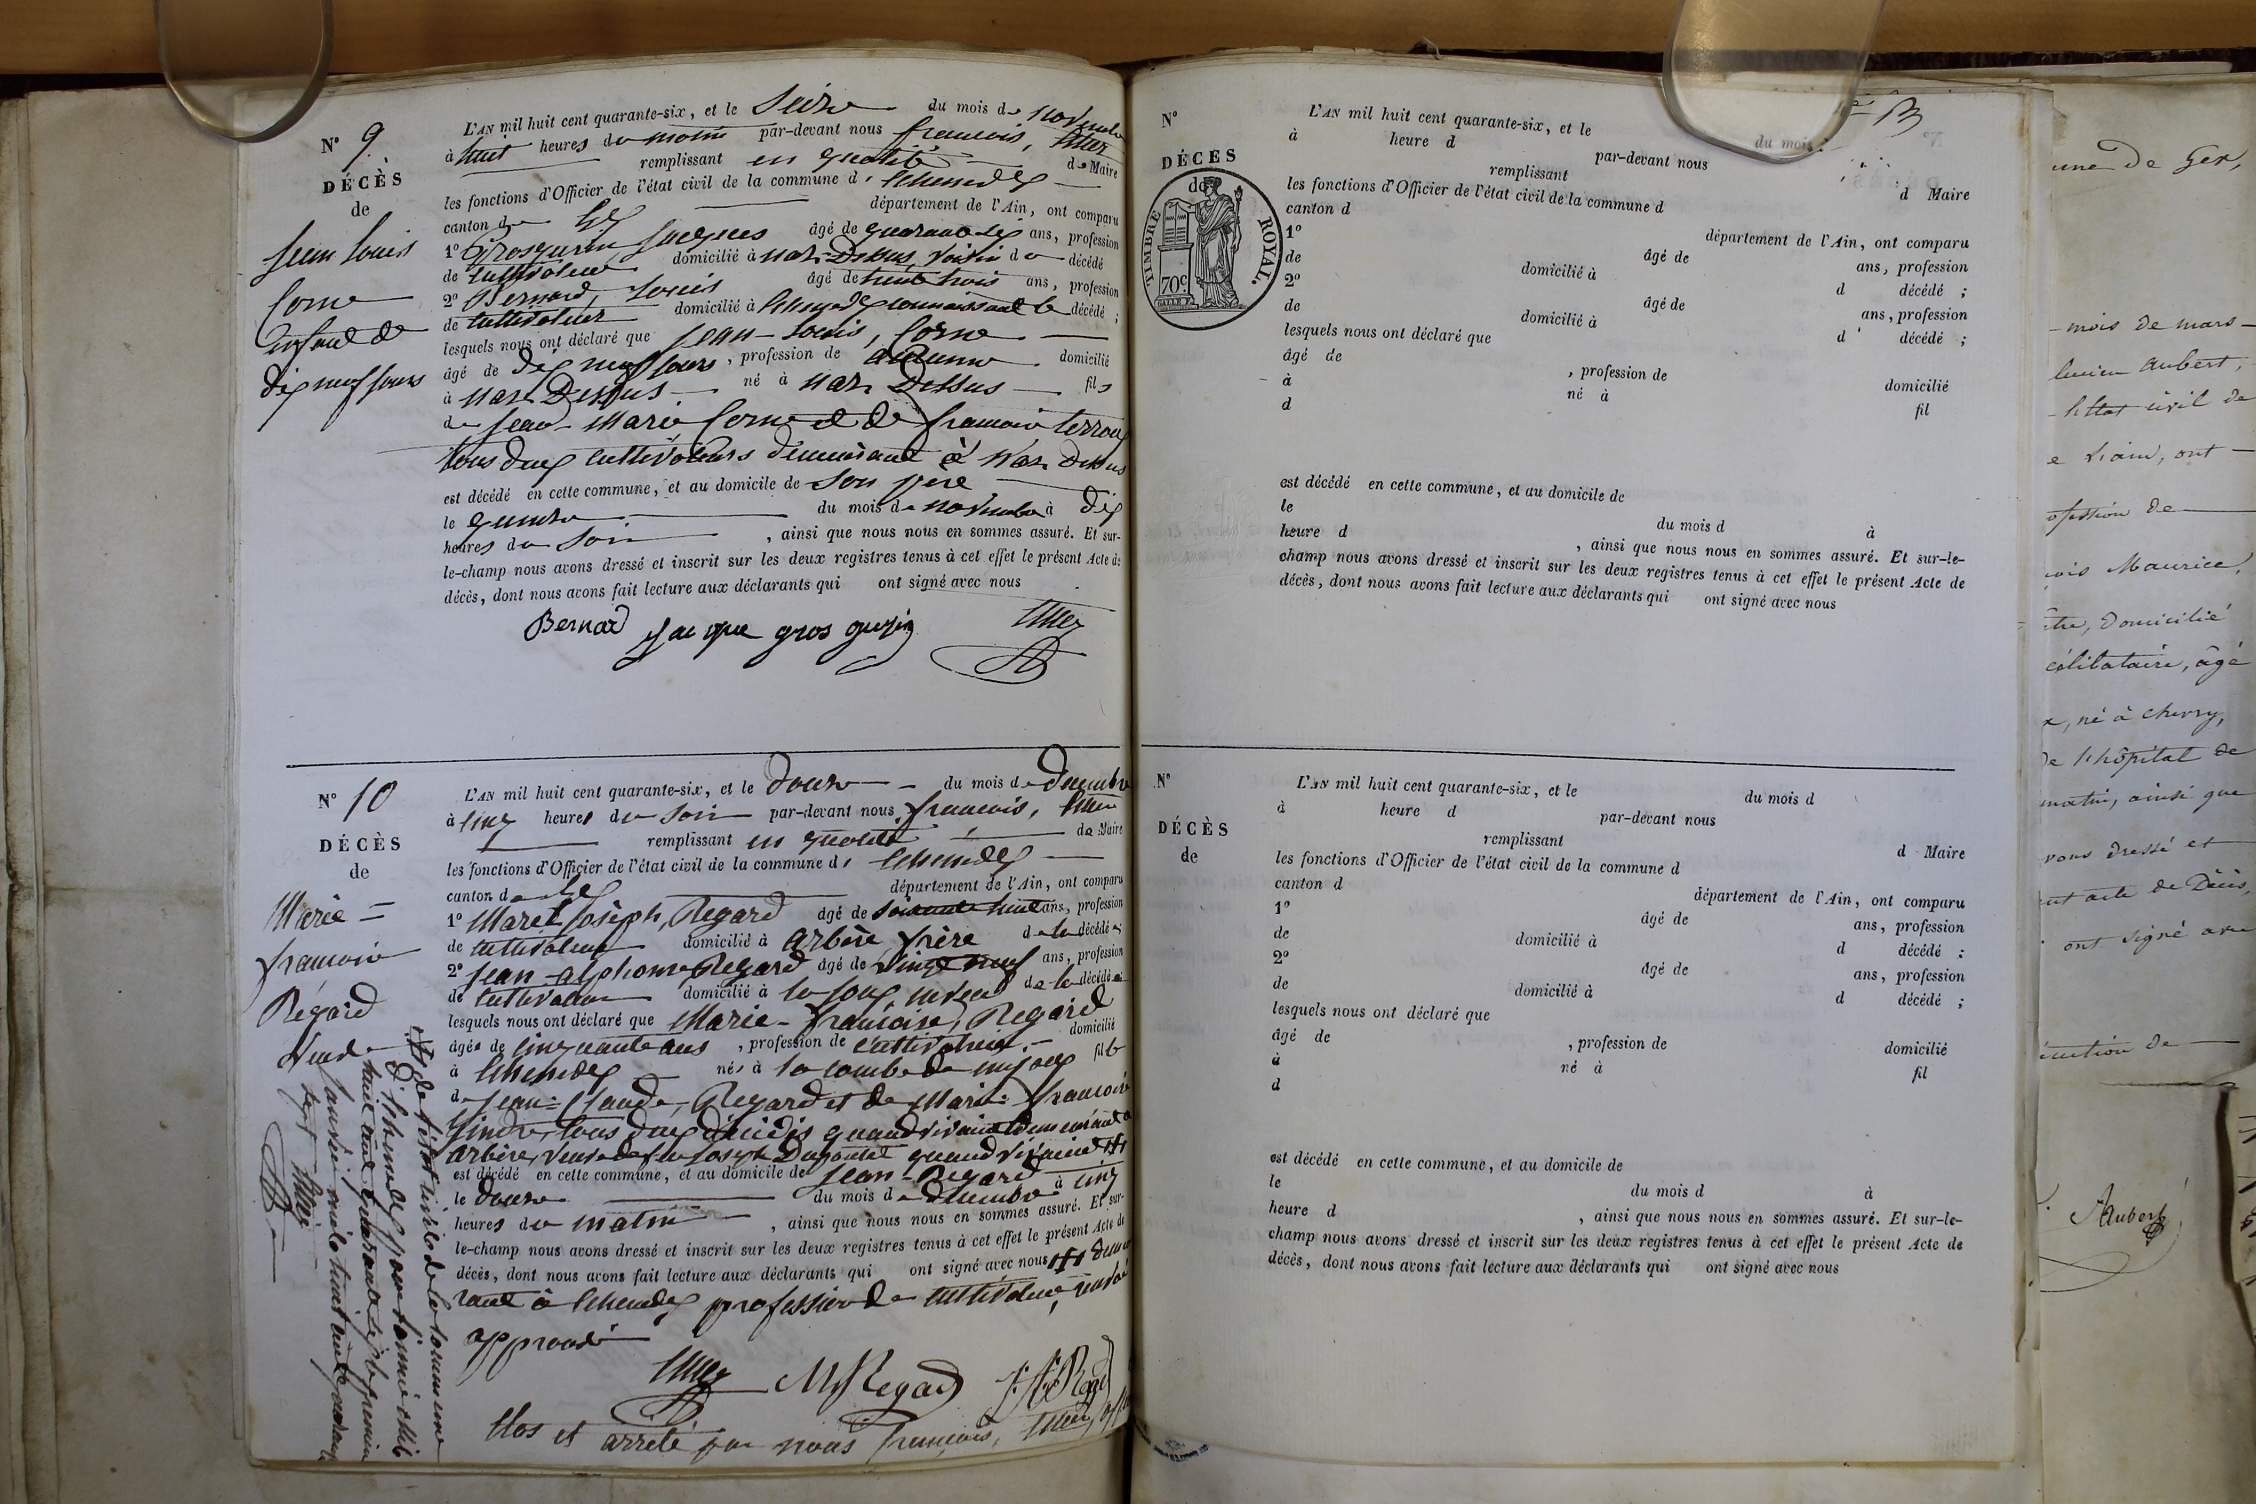 N° 9
DÉCÈS
de
Jean Louis
Corne
Enfant de
dix neuf jours
L'AN mil huit cent quarante-six, et le Seize du mois de Novembre
à huit heures du matin par-devant nous françois,
remplissant en qualité de Maire
les fonctions d'Officier de l'état civil de la commune d'
canton de Gex département de l'Ain, ont comparu
1° Grosgurin Jacques âgé de quarante six ans, profession
de Cultivateur domicilié à Naz-Dessus, Voisin du décédé
2° Bernard, Louis âgé de trente trois ans, profession
de Cultivateur domicilié à connaissant le décédé ;
lesquels nous ont déclaré que Jean-Louis, Corne
âgé de dix neuf jours, profession de aucune domicilié
à Naz Dessus né à Naz Dessus fils
de Jean-Marie Corne et de françoise
tous deux cultivateurs demeurant à Naz Dessus
est décédé en cette commune, et au domicile de son père
le quinze du mois de novembre à dix
heures du soir, ainsi que nous nous en sommes assuré. Et sur-
le-champ nous avons dressé et inscrit sur les deux registres tenus à cet effet le présent Acte de
décès, dont nous avons fait lecture aux déclarants qui ont signé avec nous
Bernard jacque gros gurin
N° 10
DÉCÈS
de
Marie =
françoise
Régard
Veuve
L'AN mil huit cent quarante-six, et le douze du mois de Décembre
à cinq heures du soir par-devant nous françois,
remplissant en qualité de Maire
les fonctions d'Officier de l'état civil de la commune d'
canton de Gex département de l'Ain, ont comparu
1° Marie Joseph, Regard âgé de soixante huit ans, profession
de cultivateur domicilié à arbère frère de la décédée
2° Jean-alphonse Regard âgé de vingt neuf ans, profession
de cultivateur domicilié à neveu de la décédée
lesquels nous ont déclaré que Marie-françoise, Regard
âgée de cinquante ans, profession de cultivatrice domicilié
à née à la combe de mijoux fille
de Jean-Claude, Regard et de Marie-françoise
tous deux décédés quand vivaient demeurant à
arbère, Veuve de feu Joseph Dupontet quand vivait
est décédé en cette commune, et au domicile de Jean-Regard
le douze du mois de décembre à cinq
heures du matin, ainsi que nous nous en sommes assuré. Et sur-
le-champ nous avons dressé et inscrit sur les deux registres tenus à cet effet le présent Acte de
décès, dont nous avons fait lecture aux déclarants qui ont signé avec nous demeu
rant à profession de cultivateur, renvoi
approuvé
M J Regard
Clos et arrêté par nous françois,
de l'état civil de la commune
pour l'année mil
huit cent quarante six le premier
janvier mil huit cent quarante
sept
N°
DÉCÈS
de
TIMBRE ROYAL.
70c.
L'AN mil huit cent quarante-six, et le du mois
à heure d par-devant nous
remplissant d Maire
les fonctions d'Officier de l'état civil de la commune d
canton d département de l'Ain, ont comparu
1° âgé de ans, profession
de domicilié à d décédé ;
2° âgé de ans, profession
de domicilié à d décédé ;
lesquels nous ont déclaré que
âgé de , profession de domicilié
à né à fil
d
est décédé en cette commune, et au domicile de
le du mois d à
heure d , ainsi que nous nous en sommes assuré. Et sur-le-
champ nous avons dressé et inscrit sur les deux registres tenus à cet effet le présent Acte de
décès, dont nous avons fait lecture aux déclarants qui ont signé avec nous
N°
DÉCÈS
de
L'AN mil huit cent quarante-six, et le du mois d
à heure d par-devant nous
remplissant d Maire
les fonctions d'Officier de l'état civil de la commune d
canton d département de l'Ain, ont comparu
1° âgé de ans, profession
de domicilié à d décédé :
2° âgé de ans, profession
de domicilié à d décédé ;
lesquels nous ont déclaré que
âgé de , profession de domicilié
à né à fil
d
est décédé en cette commune, et au domicile de
le du mois d à
heure d , ainsi que nous nous en sommes assuré. Et sur-le-
champ nous avons dressé et inscrit sur les deux registres tenus à cet effet le présent Acte de
décès, dont nous avons fait lecture aux déclarants qui ont signé avec nous
une de Gex,
mois de mars
lucien aubert,
civil de
ont
de
Maurice,
domicilié
célibataire, âgé
né à chevry,
de l'hôpital de
matin, ainsi que
dressé et
acte de Décès,
ont signé avec
de
Aubert